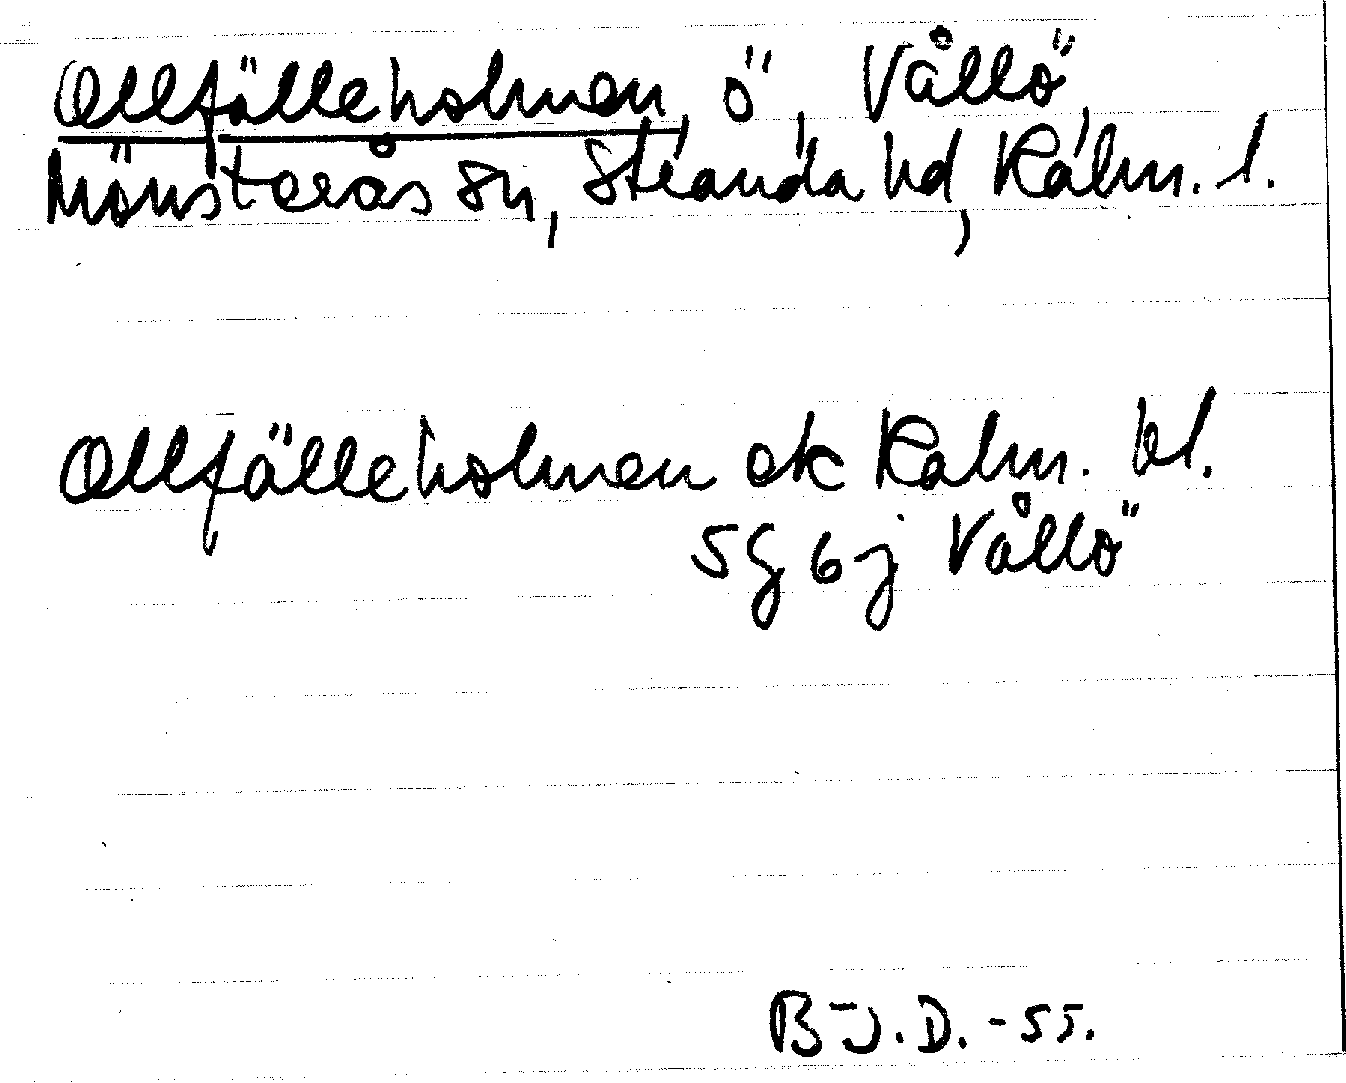 Ollfälleholmen, ö, Vållö,
Mönsterås sn, Stranda hd, Kalm. l.
Ollfälleholmen ek Kalm. bl.
5G 6j Vållö
B-J.D.-55.